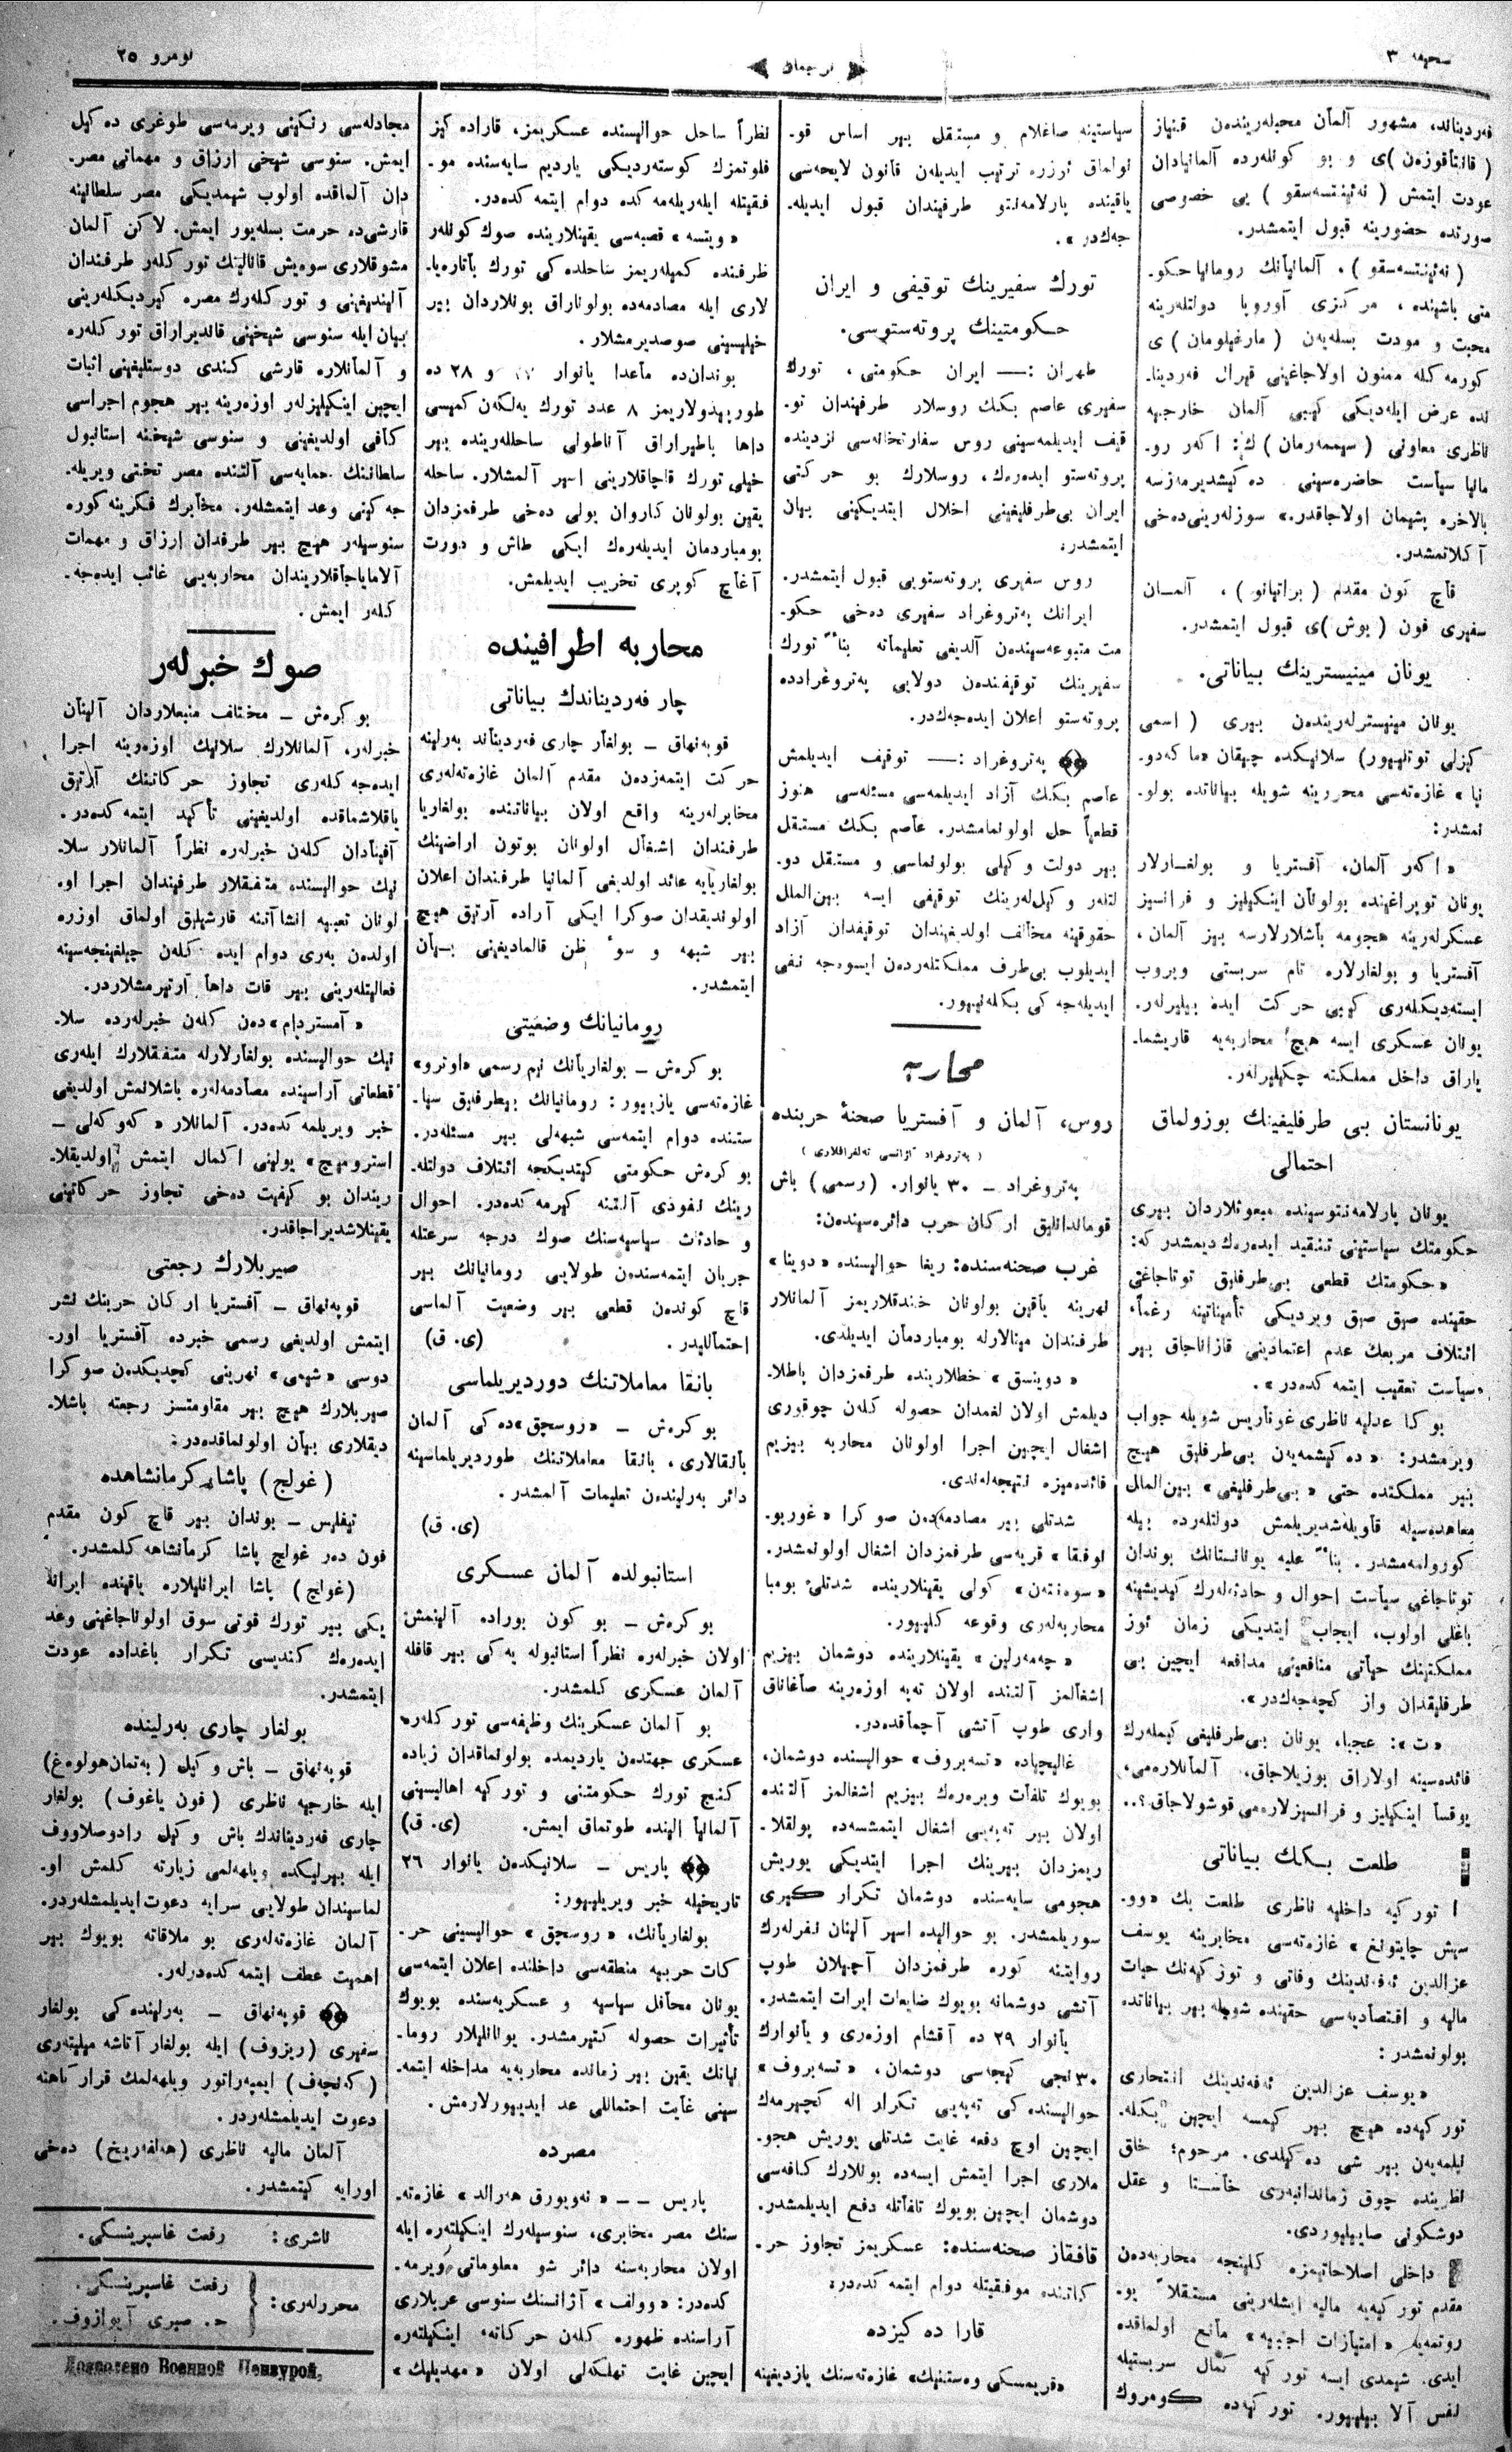 صحیفه ۳
ترجمان
نومرو ۲۵
فەردیناند، مشهور آلمان محبلەریندەن قنیاز
( قانتاقوزەن )ی و بو کونلەردە آلمانیادان
عودت ایتمش ( نەئینتسەسقو ) یی خصوصی
صورتده حضورینه قبول ایتمشدر.
( نەئینتسەسقو )، آلمانیانك رومانیا حکو-
متی باشینده، مرکزی آوروپا دولتلەرینه
محبت و مودت بسلەیەن ( مارغیلومان )ی
کورمەکله ممنون اولاجاغینی قیرال فەردینا-
نده عرض ایلەدیکی کیبی آلمان خارجیه
ناظری معاونی ( سیممەرمان )ك: اکەر رو-
مانیا سیاست حاضرەسینی دەکیشدیرمەزسه
بالاخره پشیمان اولاجاقدر» سوزلەرینی دەخی
آکلاتمشدر.
قاچ کون مقدم ( براتیانو )، آلمان
سفیری فون ( بوش )ی قبول ایتمشدر.
یونان مینیسترینك بیاناتی.
یونان مینیسترلەریندەن بیری ( اسمی
کیزلی توتلییور) سلانیکده چیقان «ماکەدو-
نیا» غازەتەسی محررینه شویله بیاناتده بولو-
نمشدر:
« اکەر آلمان، آفستریا و بولغارلار
یونان توپراغینده بولونان اینکیلیز و فرانسیز
عسکرلەرینه هجومه باشلارلارسه بیز آلمان،
آفستریا و بولغارلاره تام سربستی ویروب
ایستەدیکلەری کیبی حرکت ایده بیلیرلەر.
یونان عسکری ایسه هیچ محاربەیه قاریشما-
یاراق داخل مملکته چکیلیرلەر.
یونانستان بی طرفلیغینك بوزولماق
احتمالی
یونان پارلامەنتوسینده مبعوثلاردان بیری
حکومتك سیاستینی تنقید ایدەرەك دیمشدر که:
« حکومتك قطعی بی‌طرفلیق توتاجاغی
حقینده صیق صیق ویردیکی تأمیناتینه رغماً،
ائتلاف مربعك عدم اعتمادینی قازاناجاق بیر
سیاست تعقیب ایتمەکدەدر».
بوکا عدلیه ناظری غوناریس شویله جواب
ویرمشدر: « دەکیشمەیەن بی‌طرفلیق هیچ
بیر مملکتده حتی « بی‌طرفلیغی » بین‌الملل
معاهدەسیله قاویلەشدیریلمش دولتلەردە بیله
کورولمەمشدر. بناءً علیه یونانستانك بوندان
توتاجاغی سیاست احوال و حادثەلەرك کیدیشینه
باغلی اولوب، ایجاب ایتدیکی زمان ئوز
مملکتینك حیاتی منافعینی مدافعه ایچین بی
طرفلیقدان واز کچەجەکدر».
« ت »: عجبا، یونان بی‌طرفلیغی کیملەرك
فائدەسینه اولاراق بوزیلاجاق، آلمانلارەمی،
یوقسا اینکیلیز و فرانسیزلارەمی قوشولاجاق؟..
طلعت بکك بیاناتی
تورکیه داخلیه ناظری طلعت بك «وو-
سیش چایتونغ» غازەتەسی مخابرینه یوسف
عزالدین ئەفەندینك وفاتی و تورکیەنك حیات
مالیه و اقتصادیەسی حقینده شویله بیر بیاناتده
بولونمشدر:
« یوسف عزالدین ئەفەندینك انتحاری
تورکیەده هیچ بیر کیمسه ایچین بکله-
نیلمەیەن بیر شی دەکیلدی. مرحوم؛ خلق
نظرینده چوق زماندانبەری خاستا و عقل
دوشکونی صاییلییوردی.
داخلی اصلاحاتیمزه کلینجه محاربەدەن
مقدم تورکیەیه مالیه ایشلەرینی مستقلاً یو-
روتمەیه « امتیازات اجنبیه » مانع اولماقده
ایدی. شیمدی ایسه تورکیه کمال سربستیله
نفس آلا بیلییور. تورکیەده کومروك
سیاستینه صاغلام و مستقل بیر اساس قو-
نولماق ئوزره ترتیب ایدیلەن قانون لایحەسی
یاقینده پارلامەنتو طرفیندان قبول ایدیله-
جەكدر».
تورك سفیرینك توقیفی و ایران
حکومتینك پروتەستوسی.
طهران :— ایران حکومتی، تورك
سفیری عاصم بکك روسلار طرفیندان تو-
قیف ایدیلمەسینی روس سفارتخانەسی نزدینده
پروتەستو ایدەرەك، روسلارك بو حرکتی
ایران بی‌طرفلیغینی اخلال ایتدیکینی بیان
ایتمشدر.
روس سفیری پروتەستویی قبول ایتمشدر.
ایرانك پەتروغراد سفیری دەخی حکو-
مت متبوعەسیندەن آلدیغی تعلیماته بناءً تورك
سفیرینك توقیفندەن دولایی پەتروغرادده
پروتەستو اعلان ایدەجەکدر.
پەتروغراد :— توقیف ایدیلمش
عاصم بکك آزاد ایدیلمەسی مسئلەسی هنوز
قطعیاً حل اولونمامشدر. عاصم بکك مستقل
بیر دولت وکیلی بولونماسی و مستقل دو-
لتلەر وکیل‌لەرینك توقیفی ایسه بین‌الملل
حقوقینه مخالف اولدیغیندان توقیفدان آزاد
ایدیلوب بی‌طرف مملکتلەردەن ایسوەجه نفی
ایدیلەجەکی بکلەنییور.
محاربه
روس، آلمان و آفستریا صحنۀ حربنده
( پەتروغراد آژانسی تەلغرافلاری )
پەتروغراد – ۳۰ یانوار. (رسمی) باش
قوماندانلیق ارکان حرب دائرەسیندەن:
غرب صحنەسنده: ریغا حوالیسنده « دوینا »
نهرینه یاقین بولونان خندقلاریمز آلمانلار
طرفندان مینالارله بومباردمان ایدیلدی.
« دوینسق » خطلارینده طرفمزدان پاطلا-
دیلمش اولان لغمدان حصوله کلەن چوقوری
اشغال ایچین اجرا اولونان محاربه بیزیم
فائدەمیزه نتیجەلەندی.
شدتلی بیر مصادمەدەن صوکرا « غوربو-
نوفقا » قریەسی طرفمزدان اشغال اولونمشدر.
« سوەنتەن » کولی یقینلارینده شدتلی بومبا
محاربەلەری وقوعه کلییور.
« چەمەرلین » یقینلارینده دوشمان بیزیم
اشغالمز آلتنده اولان تەپه اوزەرینه صاغاناق
واری طوپ آتشی آچماقدەدر.
غالیچیاده « تسەبروف » حوالیسنده دوشمان،
بویوك تلفات ویرەرەك بیزیم اشغالمز آلتنده
اولان بیر تەپەیی اشغال ایتمشسەده بولقلا-
ریمزدان بیرینك اجرا ایتدیکی یوریش
هجومی سایەسنده دوشمان تکرار کیری
سوریلمشدر. بو حوالیده اسیر آلینان نفرلەرك
روایتنه کوره طرفمزدان آچیلان طوپ
آتشی دوشمانه بویوك ضایعات ایراث ایتمشدر.
یانوار ۲۹ ده آقشام اوزەری و یانوارك
۳۰نجی کیجەسی دوشمان، « تسەبروف »
حوالیسندەکی تەپەیی تکرار اله کچیرمەك
ایچین اوچ دفعه غایت شدتلی یوریش هجو-
ملاری اجرا ایتمش ایسەده بونلارك کافەسی
دوشمان ایچین بویوك تلفاتله دفع ایدیلمشدر.
قافقاز صحنەسنده: عسکریمز تجاوز حر-
کاتنده موفقیتله دوام ایتمەکدەدر.
قارا دەکیزده
«قریمسکی وەستنیك» غازەتەسنك یازدیغینه
نظراً ساحل حوالیسنده عسکریمز، قارادەکیز
فلوتمزك کوستەردیکی یاردیم سایەسنده مو-
فقیتله ایلەریلەمەکده دوام ایتمەکدەدر.
« ویتسه » قصبەسی یقینلارینده صوك کونلەر
ظرفنده کمیلەریمز ساحلدەکی تورك باتارەیا-
لاری ایله مصادمەده بولوناراق بونلاردان بیر
خیلیسینی صوصدیرمشلار.
بونداندە ماعدا یانوار ۲۷ و ۲۸ ده
طورپیدولاریمز ۸ عدد تورك یەلکەن کمیسی
داها باطیراراق آناطولی ساحللەرینده بیر
خیلی تورك قاچاقلارینی اسیر آلمشلار. ساحله
یقین بولونان کاروان یولی دەخی طرفمزدان
بومباردمان ایدیلەرەك ایکی طاش و دورت
آغاچ کوپری تخریب ایدیلمش.
محاربه اطرافینده
چار فەردیناندك بیاناتی
قوپەنهاق – بولغار چاری فەردیناند بەرلینه
حرکت ایتمەزدەن مقدم آلمان غازەتەلەری
مخابرلەرینه واقع اولان بیاناتنده بولغاریا
طرفندان اشغال اولونان بوتون اراضینك
بولغاریایه عائد اولدیغی آلمانیا طرفندان اعلان
اولوندیقدان صوکرا ایکی آراده آرتیق هیچ
بیر شبهه و سوء ظن قالمادیغینی بیان
ایتمشدر.
رومانیانك وضعیتی
بوکرەش – بولغاریانك نیم رسمی «اوترو»
غازەتەسی یازییور: رومانیانك بیطرفلیق سیا-
ستنده دوام ایتمەسی شبهەلی بیر مسئلەدر.
بوکرەش حکومتی کیتدیکجه ائتلاف دولتله-
رینك نفوذی آلتنه کیرمەکدەدر. احوال
و حادثات سیاسیەسنك صوك درجه سرعتله
جریان ایتمەسندەن طولایی رومانیانك بیر
قاچ کوندەن قطعی بیر وضعیت آلماسی
احتمالیدر. (ی. ق)
بانقا معاملاتنك دوردیریلماسی
بوکرەش – «روسچق»دەکی آلمان
بانقالاری، بانقا معاملاتنك طوردیریلماسینه
دائر بەرلیندەن تعلیمات آلمشدر.
(ی. ق)
استانبولده آلمان عسکری
بوکرەش – بو کون بوراده آلینمش
اولان خبرلەره نظراً استانبوله یەکی بیر قافله
آلمان عسکری کلمشدر.
بو آلمان عسکرینك وظیفەسی تورکلەره
عسکری جهتدەن یاردیمده بولونماقدان زیاده
کنج تورك حکومتنی و تورکیه اهالیسینی
آلمانیا الینده طوتماق ایمش. (ی. ق)
پاریس – سلانیکدەن یانوار ۲۶
تاریخیله خبر ویریلییور:
بولغاریانك، « روسچق » حوالیسینی حر-
کات حربیه منطقەسی داخلنده اعلان ایتمەسی
یونان محافل سیاسیه و عسکریەسنده بویوك
تأثیرات حصوله کتیرمشدر. یونانلیلار روما-
نیانك یقین بیر زمانده محاربەیه مداخله ایتمه-
سینی غایت احتماللی عد ایدییورلارمش.
مصرده
پاریس –– « نەویورق هەرالد » غازەته-
سنك مصر مخابری، سنوسیلەرك اینکیلتەره ایله
اولان محاربەسنه دائر شو معلوماتی ویرمه-
کدەدر: « وولف » آژانسنك سنوسی عربلاری
آراسنده ظهوره کلەن حرکاته، اینکیلتەره
ایچین غایت تهلکەلی اولان « مهدیلیك »
مجادلەسی رنکینی ویرمەسی طوغری دەکیل
ایمش. سنوسی شیخی ارزاق و مهماتی مصر-
دان آلماقده اولوب شیمدیکی مصر سلطانینه
قارشی‌ده حرمت بسلەیور ایمش. لاکن آلمان
مشوقلاری سوەیش قانالینك تورکلەر طرفندان
آلیندیغینی و تورکلەرك مصره کیردیکلەرینی
بیان ایله سنوسی شیخینی قاندیراراق تورکلەره
و آلمانلاره قارشی کندی دوستلیغینی اثبات
ایچین اینکیلیزلەر اوزەرینه بیر هجوم اجراسی
کافی اولدیغینی و سنوسی شیخنه استانبول
سلطانینك حمایەسی آلتنده مصر تختی ویریله-
جەکینی وعد ایتمشلەر. مخابرك فکرینه کوره
سنوسیلەر هیچ بیر طرفدان ارزاق و مهمات
آلامایاجاقلاریندان محاربەیی غائب ایدەجه-
کلەر ایمش.
صوك خبرلەر
بوکرەش – مختلف منبعلاردان آلینان
خبرلەر، آلمانلارك سلانیك اوزەرینه اجرا
ایدەجەکلەری تجاوز حرکاتنك آرتیق
یاقلاشماقده اولدیغینی تأکید ایتمەکدەدر.
آفینادان کلەن خبرلەره نظراً آلمانلار سلا-
نیك حوالیسنده متفقلار طرفیندان اجرا او-
لونان تعبیه انشاآتنه قارشیلیق اولماق اوزره
اولدەن بەری دوام ایده کلەن چیلغینجەسینه
فعالیتلەرینی بیر قات داها آرتیرمشلاردر.
« آمستردام »دەن کلەن خبرلەرده سلا-
نیك حوالیسنده بولغارلارله متفقلارك ایلەری
قطعاتی آراسینده مصادمەلەره باشلانمش اولدیغی
خبر ویریلمەکدەدر. آلمانلار « کەوکەلی –
استرومیچ » یولینی اکمال ایتمش اولدیقلا-
ریندان بو کیفیت دەخی تجاوز حرکاتینی
یقینلاشدیراجاقدر.
صیربلارك رجعتی
قوپەنهاق – آفستریا ارکان حربنك نشر
ایتمش اولدیغی رسمی خبرده آفستریا اور-
دوسی « شیمی » نهرینی کچدیکدەن صوکرا
صیربلارك هیچ بیر مقاومتسز رجعته باشلا-
دیقلاری بیان اولونماقدەدر.
(غولچ) پاشا کرمانشاهده
تیفلیس – بوندان بیر قاچ کون مقدم
فون دەر غولچ پاشا کرمانشاهه کلمشدر.
(غولچ) پاشا ایرانلیلاره یاقینده ایرانه
یکی بیر تورك قوتی سوق اولوناجاغینی وعد
ایدەرەك کندیسی تکرار بغداده عودت
ایتمشدر.
بولغار چاری بەرلینده
قوپەنهاق – باش وکیل (بەتمان هولوەغ)
ایله خارجیه ناظری (فون یاغوف) بولغار
چاری فەردیناندك باش وکیل رادوصلاووف
ایله بیرلیکده ویلهەلمی زیارته کلمش او-
لماسیندان طولایی سرایه دعوت ایدیلمشلەردر.
آلمان غازەتەلەری بو ملاقاته بویوك بیر
اهمیت عطف ایتمەکدەدرلەر.
قوپەنهاق – بەرلیندەکی بولغار
سفیری (ریزوف) ایله بولغار آتاشه میلیتەری
(کەنچەف) ایمپەراتور ویلهەلمك قرارکاهنه
دعوت ایدیلمشلەردر.
آلمان مالیه ناظری (هەلفەریخ) دەخی
اورایه کیتمشدر.
ناشری: رفعت غاسپرینسکی.
محررلەری: رفعت غاسپرینسکی.
ح. صبری آیوازوف.
Дозволено Военной Цензурой.